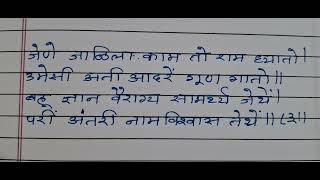 जेणे जाळिला काम तो राम ध्यातो।
उमेसी अती आदरें गूण गातो॥
बहू ज्ञान वैराग्य सामर्थ्य जेथें।
परी अंतरी नामविश्वास तेथें॥८३॥